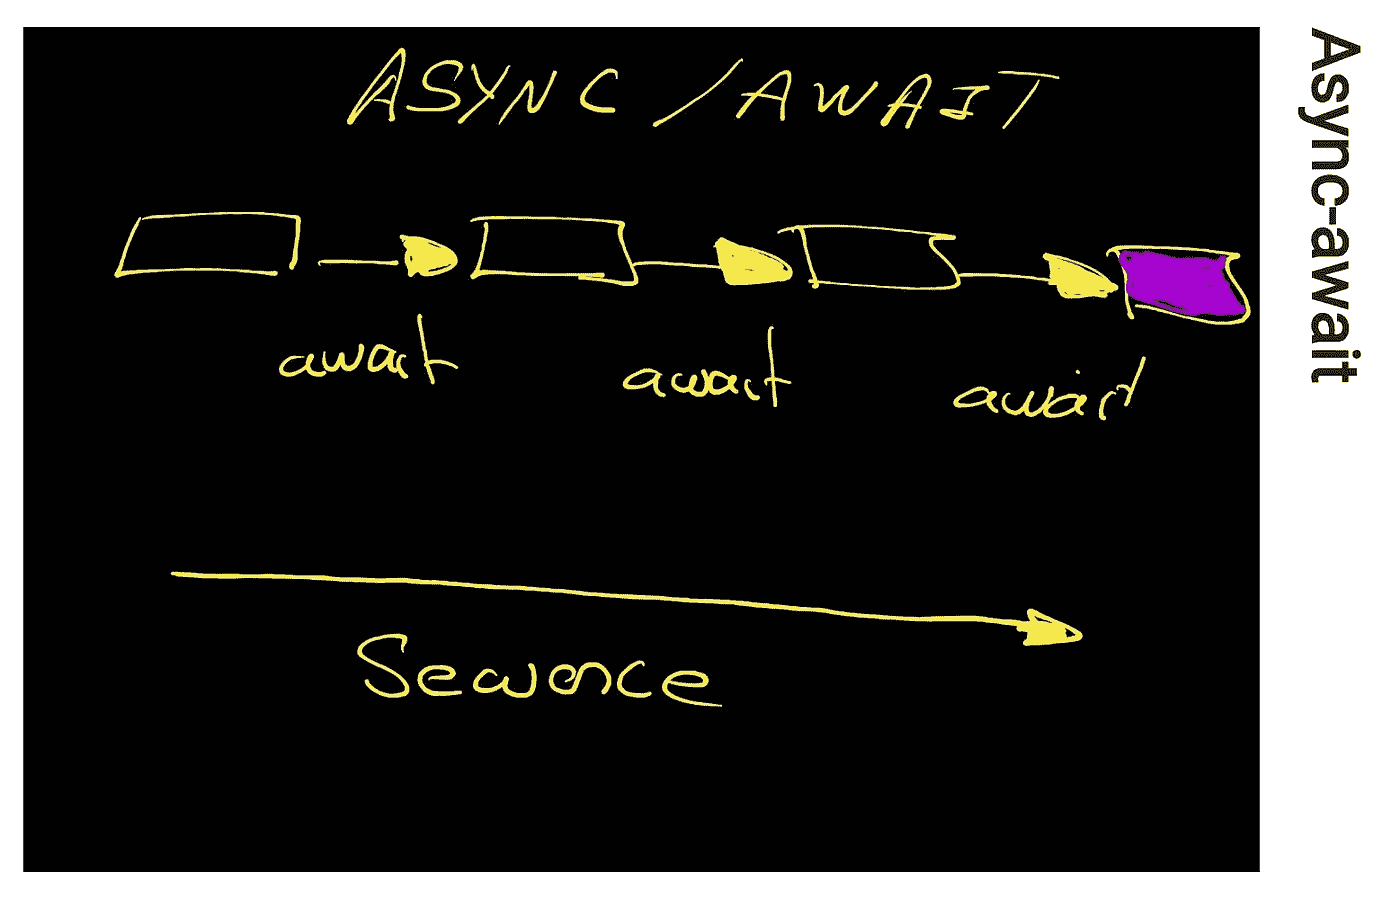 ASYNC/AWAIT
await await await
Sequence
Async-await